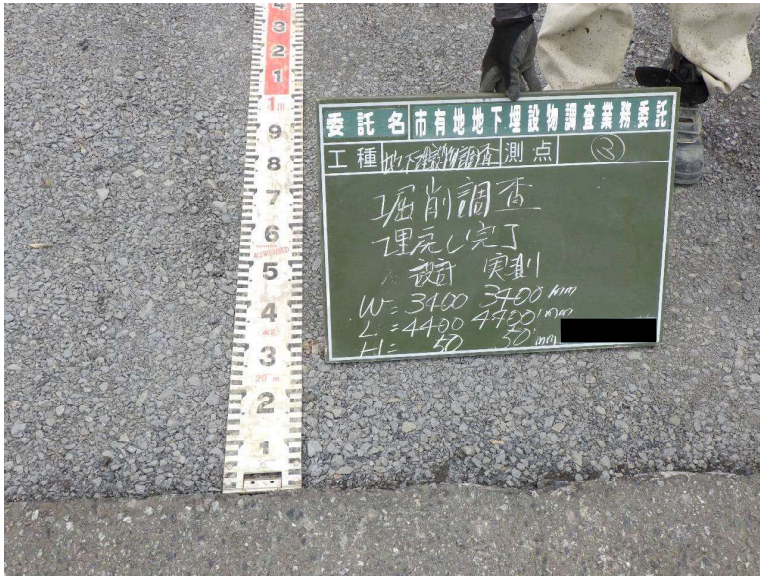 4
3
2
1
1m
9
8
7
6
5
4
3
20 m
2
1
委託名 市有地地下埋設物調査業務委託
工種 地下埋設物調査 測点 ③
掘削調査
埋戻し完了
設計 実測
W=3400 3400 mm
L=4400 4400 mm
H= 50 50 mm